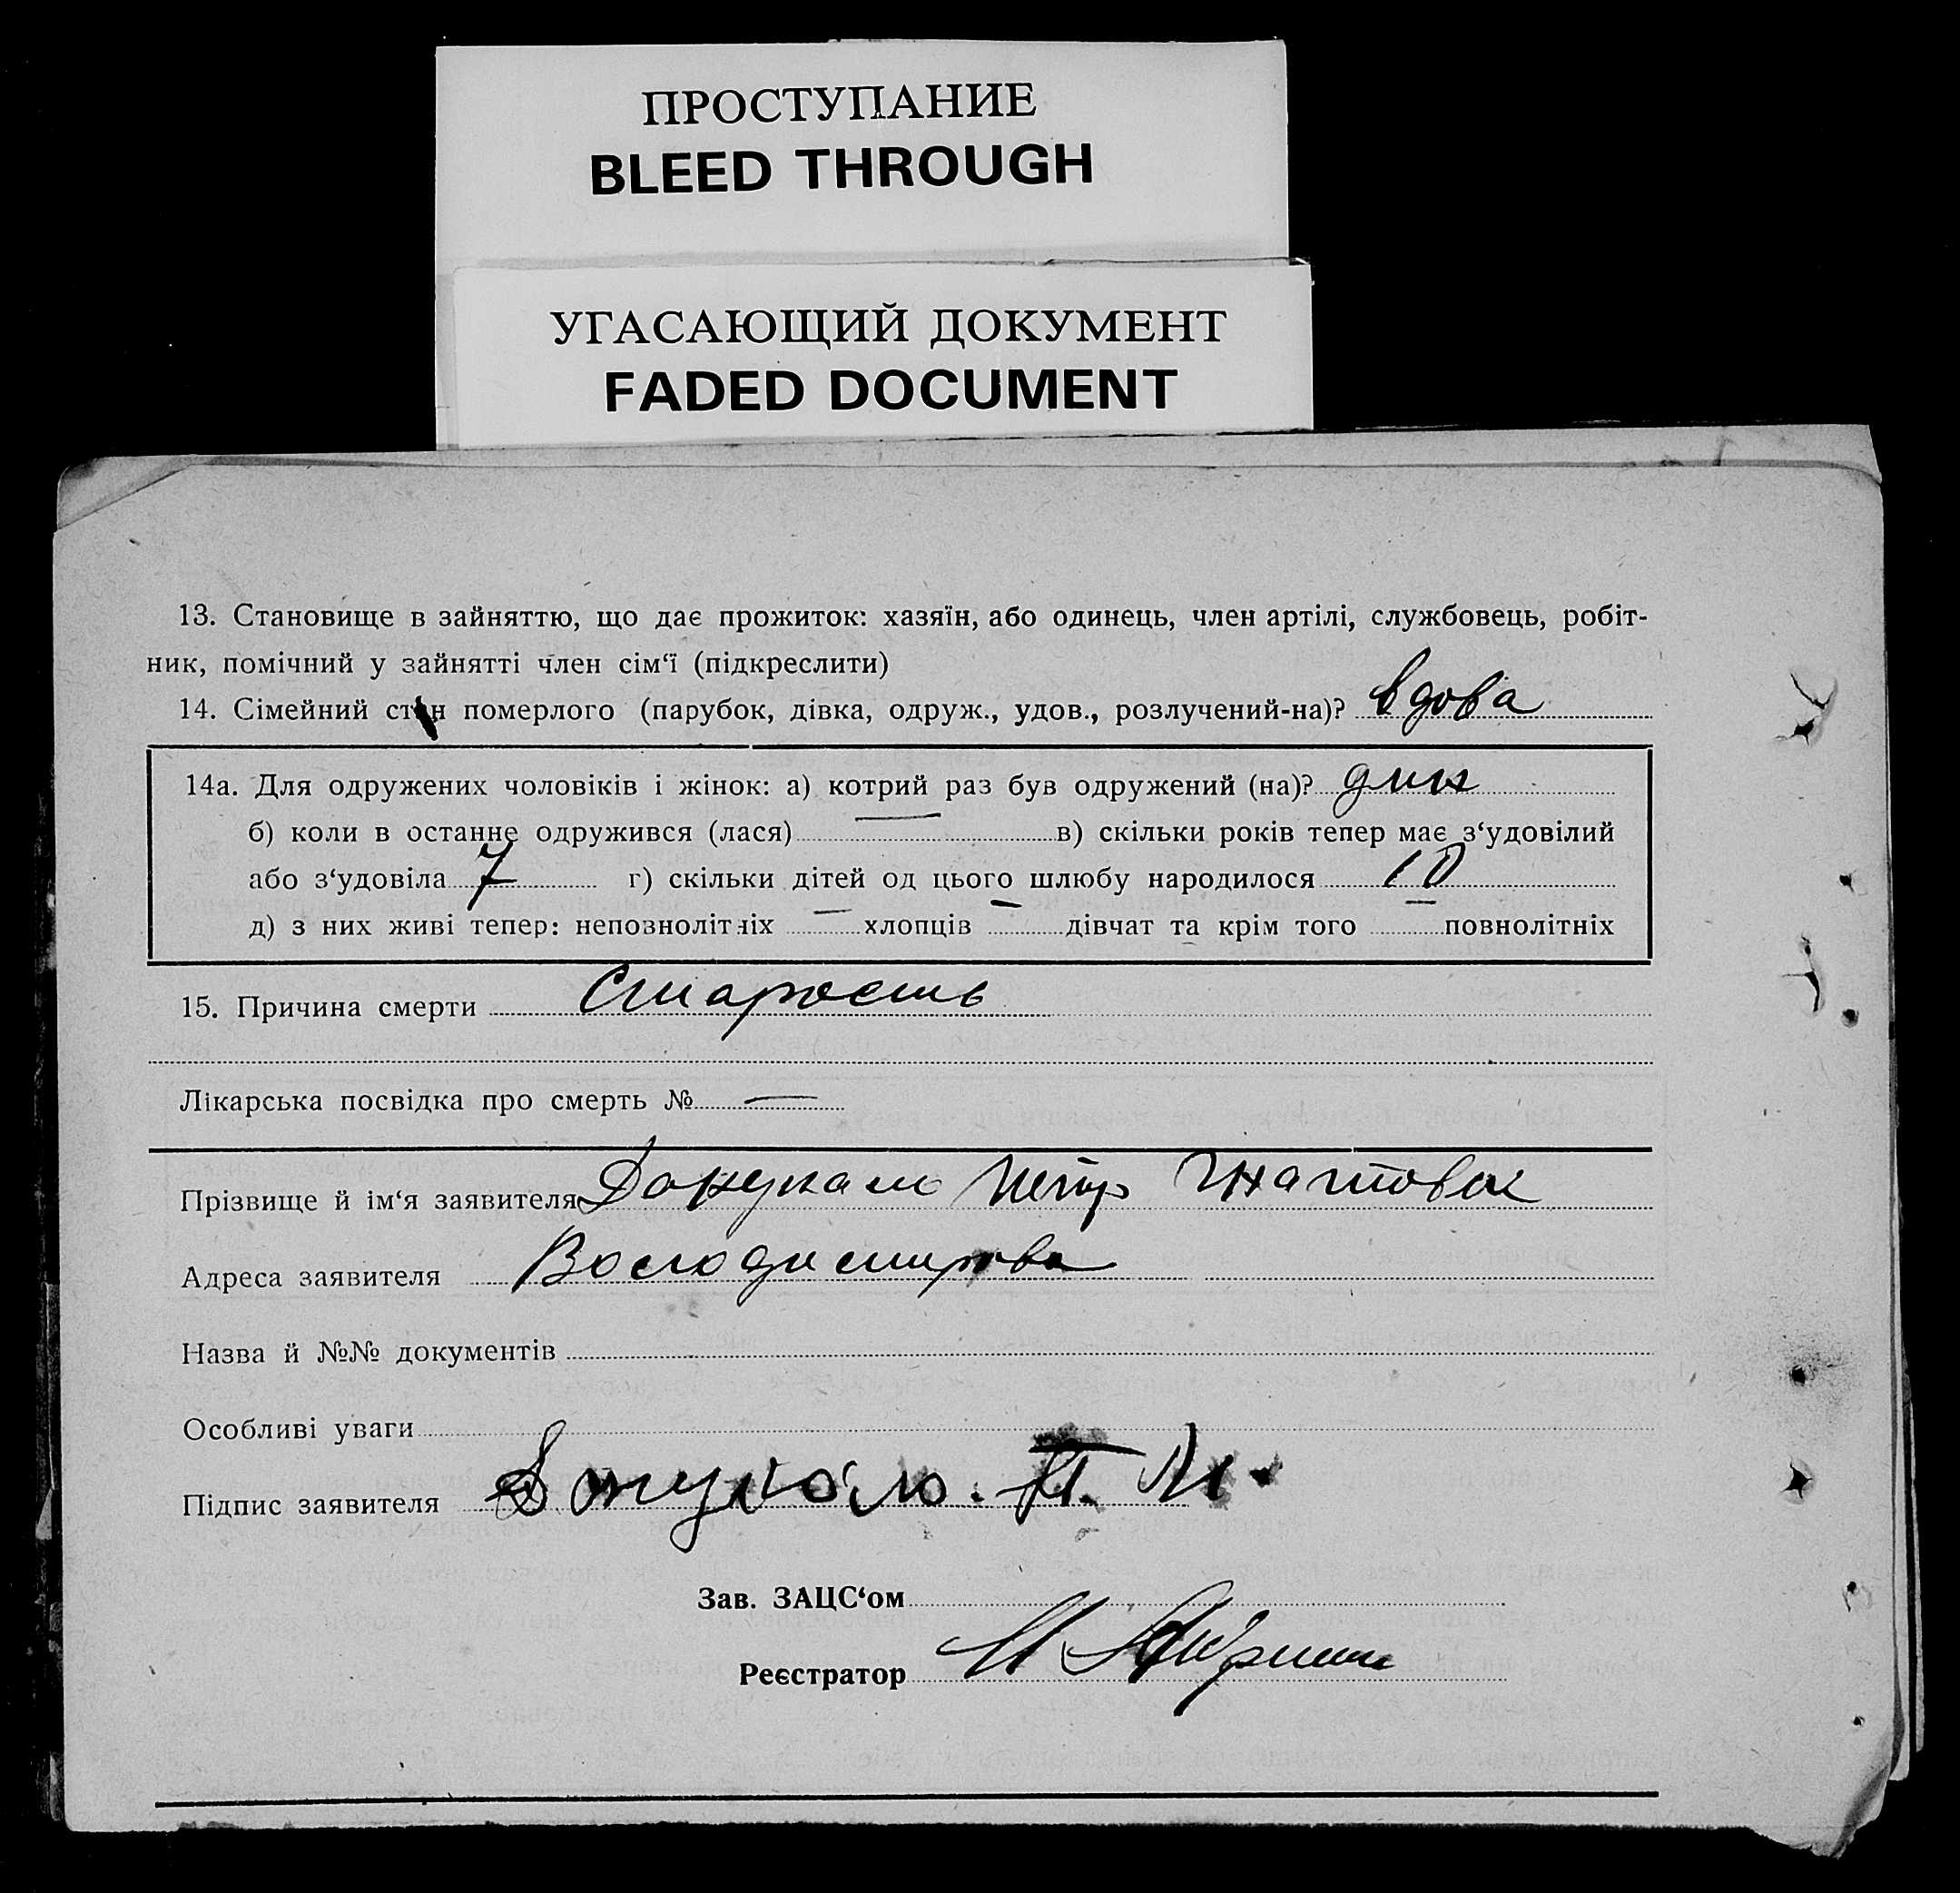 ПРОСТУПАНИЕ
BLEED THROUGH
УГАСАЮЩИЙ ДОКУМЕНТ
FADED DOCUMENT
13. Становище в зайняттю, що дає прожиток: хазяїн, або одинець, член артілі, службовець, робіт-
ник, помічний у зайнятті член сім‘ї (підкреслити)
14. Сімейний стан померлого (парубок, дівка, одруж., удов., розлучений-на)? вдова
14а. Для одружених чоловіків і жінок: а) котрий раз був одружений (на)?
б) коли в останнє одружився (лася) — в) скільки років тепер має з‘удовілий
або з‘удовіла 7 г) скільки дітей од цього шлюбу народилося 10
д) з них живі тепер: неповнолітніх — хлопців — дівчат та крім того — повнолітніх
15. Причина смерти Старость
Лікарська посвідка про смерть № —
Прізвище й ім‘я заявителя Петр
Адреса заявителя
Назва й №№ документів
Особливі уваги
Підпис заявителя
Зав. ЗАЦС‘ом
Реєстратор